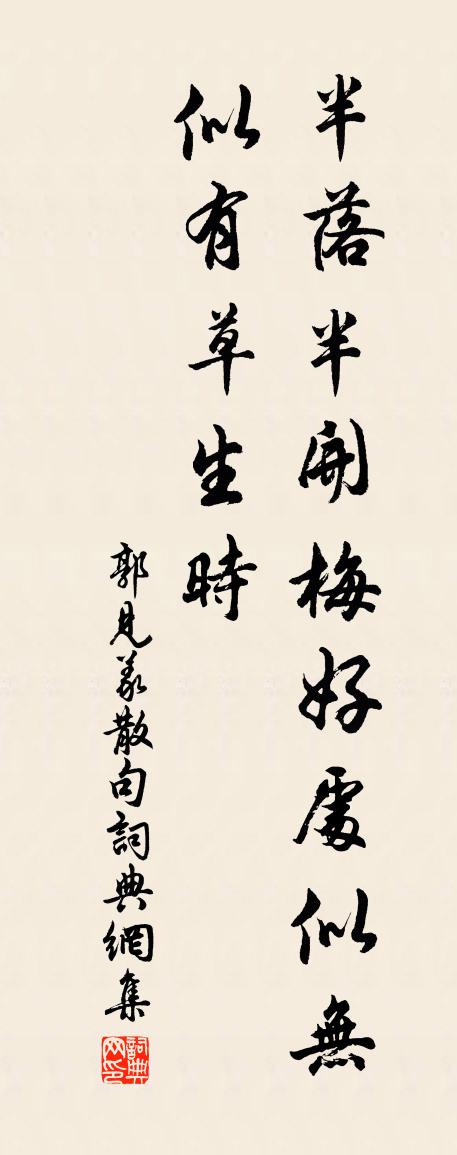 半落半開梅好處似無
似有草生時
郭見義散句詞典網集
詞典网印